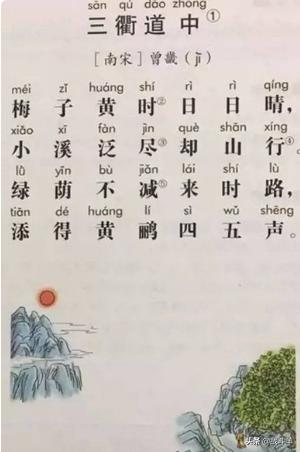 sān qú dào zhōng
三衢道中①
［南宋］曾畿（jǐ）
méi zǐ huáng shí rì rì qíng
梅子黄时②日日晴，
xiǎo xī fàn jìn què shān xíng
小溪泛尽③却山行④。
lǜ yīn bù jiǎn lái shí lù
绿荫不减⑤来时路，
tiān dé huáng lí sì wǔ shēng
添得黄鹂四五声。